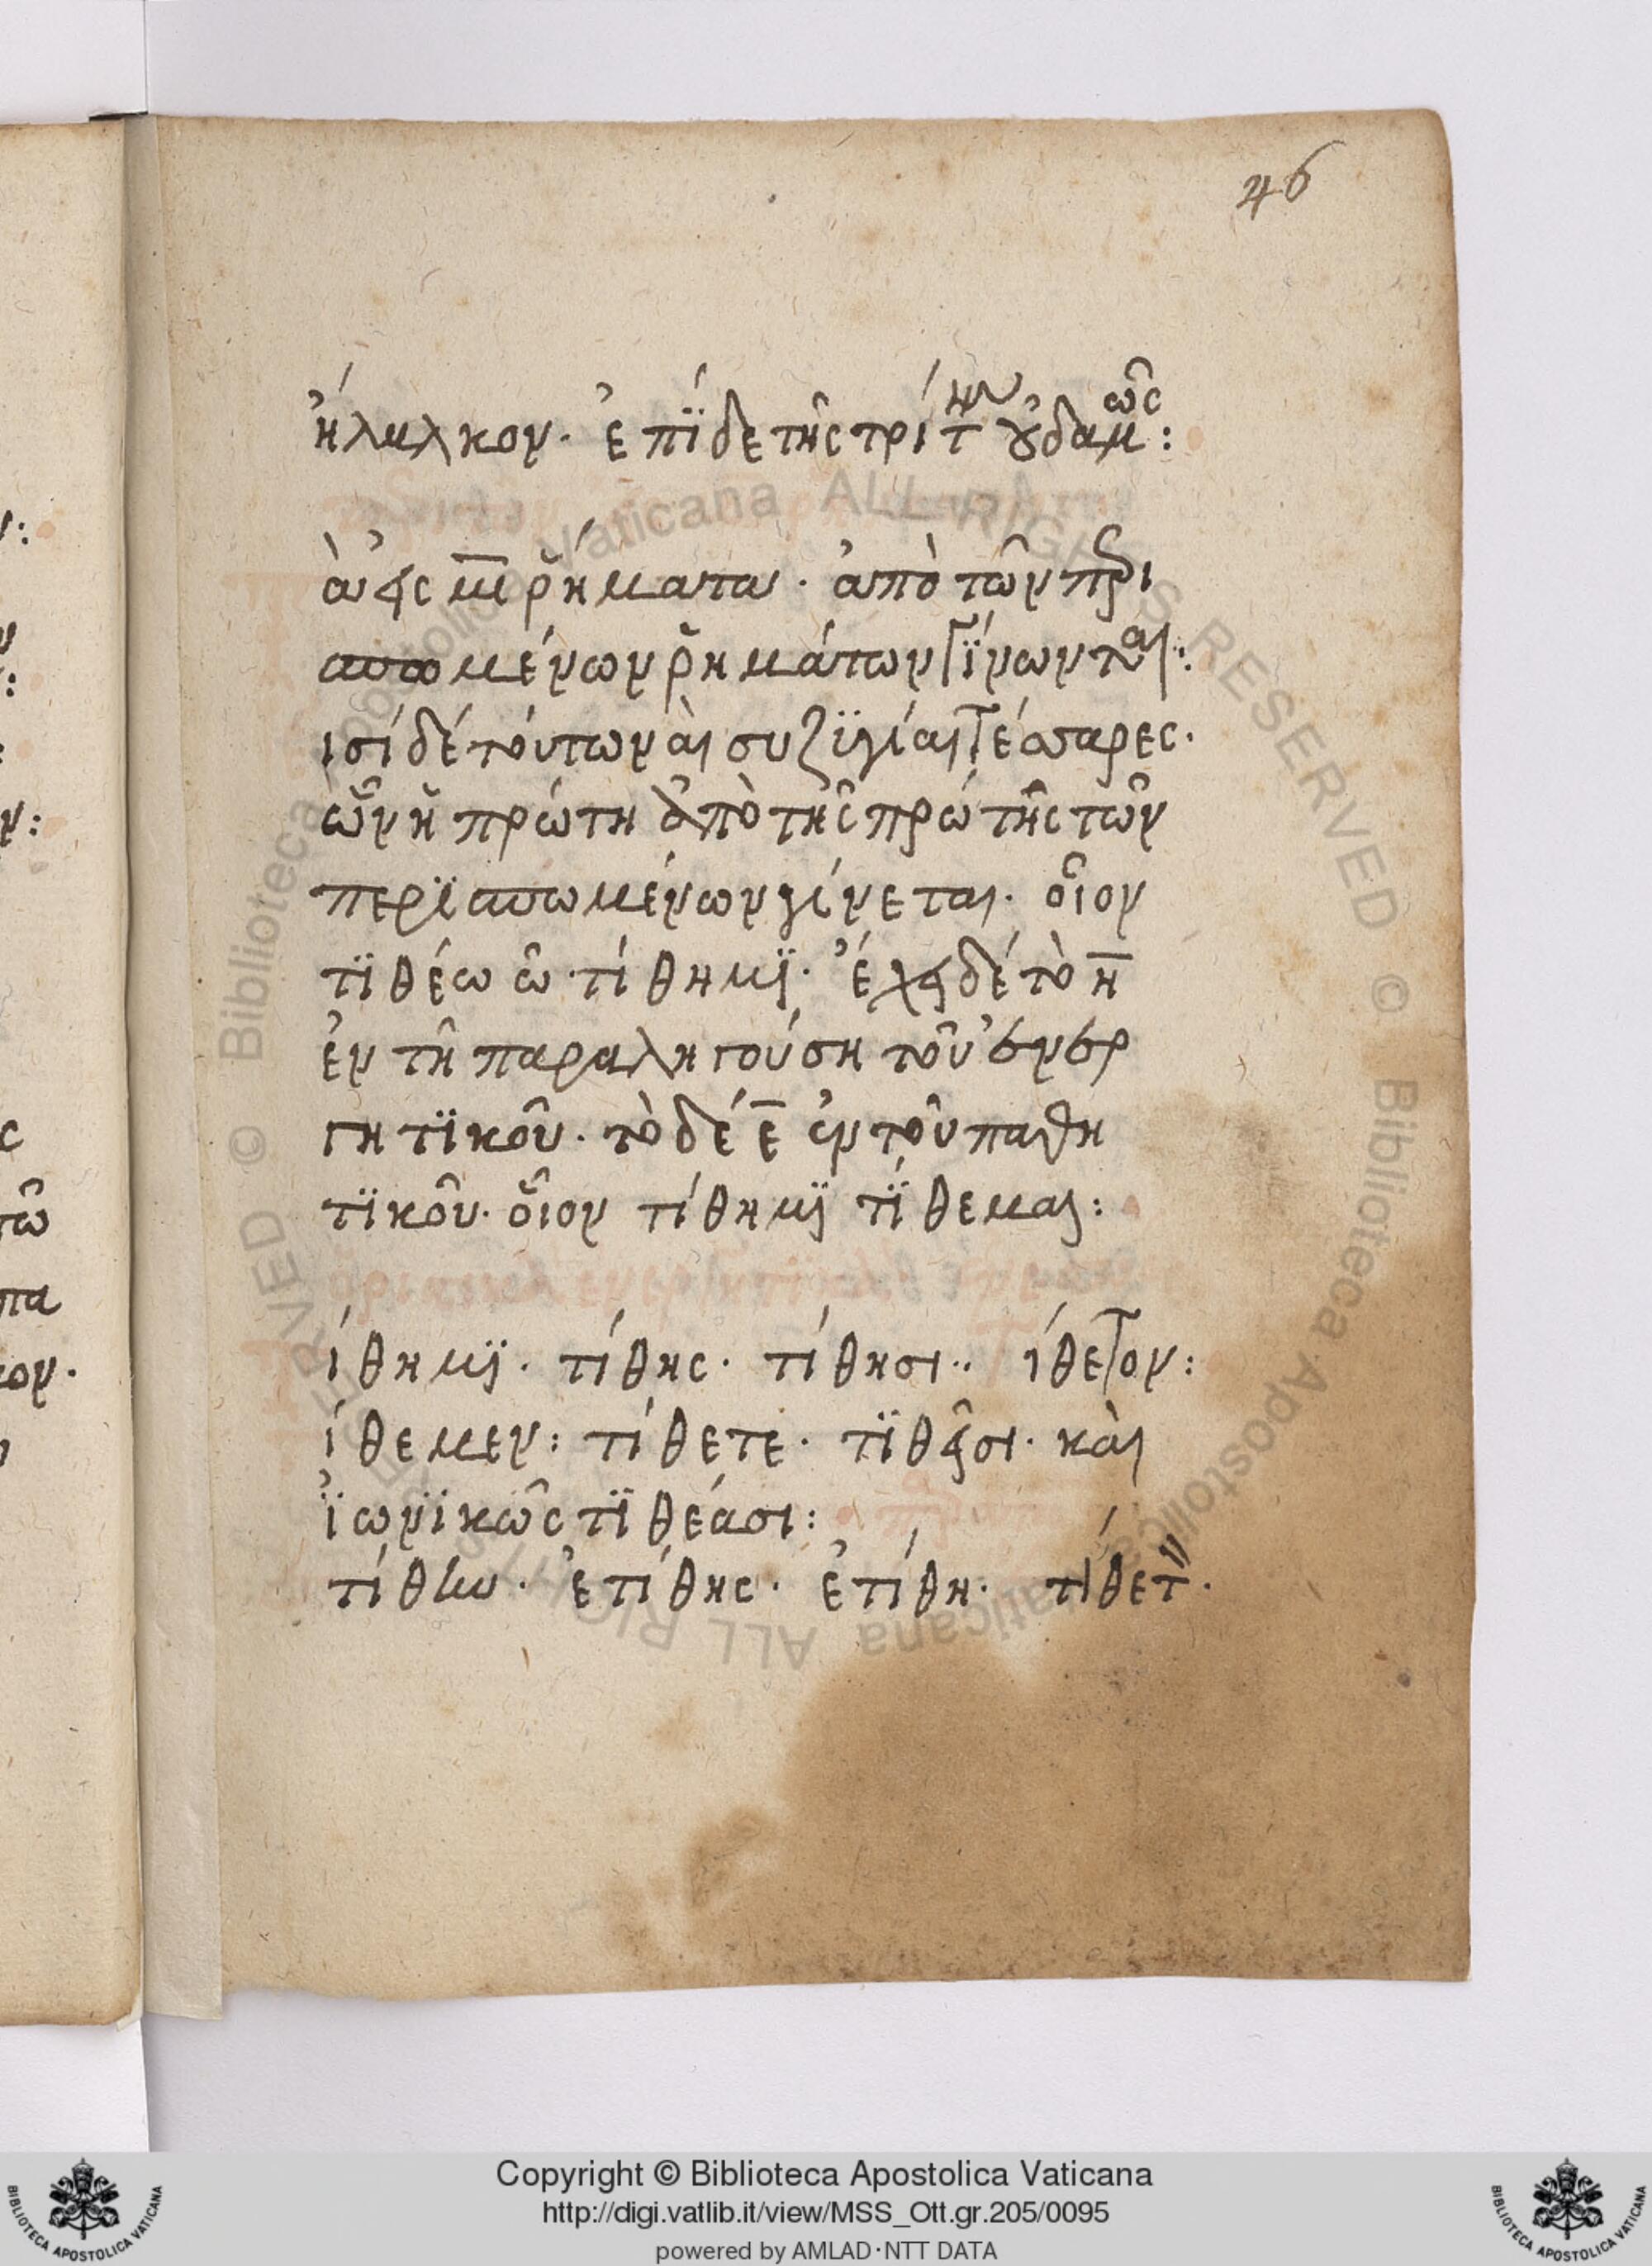 46
ἠλαλκον. ἐπῒ δε τῆς τρίτην οὐδαμῶς:
ὰ εἰς μῑ ῥήματα. ἀπὸ τῶν περι
σπωμένων ῥημάτων γΐνωνται:
ισί δέ τούτων ὰι συζϋγίαι τέσσαρες.
ὧν ἡ πρώτη ἀπὸ τῆς πρώτης τῶν
περϊσπωμένων γίνεται. οἷον
τϊθέω ῶ τίθημϊ. ἔχει δέ τὸ η̄
ἐν τῆ παραληγούση τοῦ ἐνερ
γητϊκοῦ. τὸ δέ ε̄ ἐν τοῦ παθη
τϊκοῦ. οἷον τίθημϊ τΐθεμαι:
ίθημϊ. τίθης. τίθησι.. ίθετον:
ίθεμεν: τίθετε. τϊθεῖσι. κὰι
ϊωνϊκῶς τϊθέασι:
τίθην. ἐτίθης. ἐτίθη. τίθετον.
Copyright © Biblioteca Apostolica Vaticana
http://digi.vatlib.it/view/MSS_Ott.gr.205/0095
powered by AMLAD·NTT DATA
BIBLIOTECA APOSTOLICA VATICANA
BIBLIOTECA APOSTOLICA VATICANA
© Biblioteca Apostolica Vaticana ALL RIGHTS RESERVED © Biblioteca Apostolica Vaticana ALL RIGHTS RESERVED